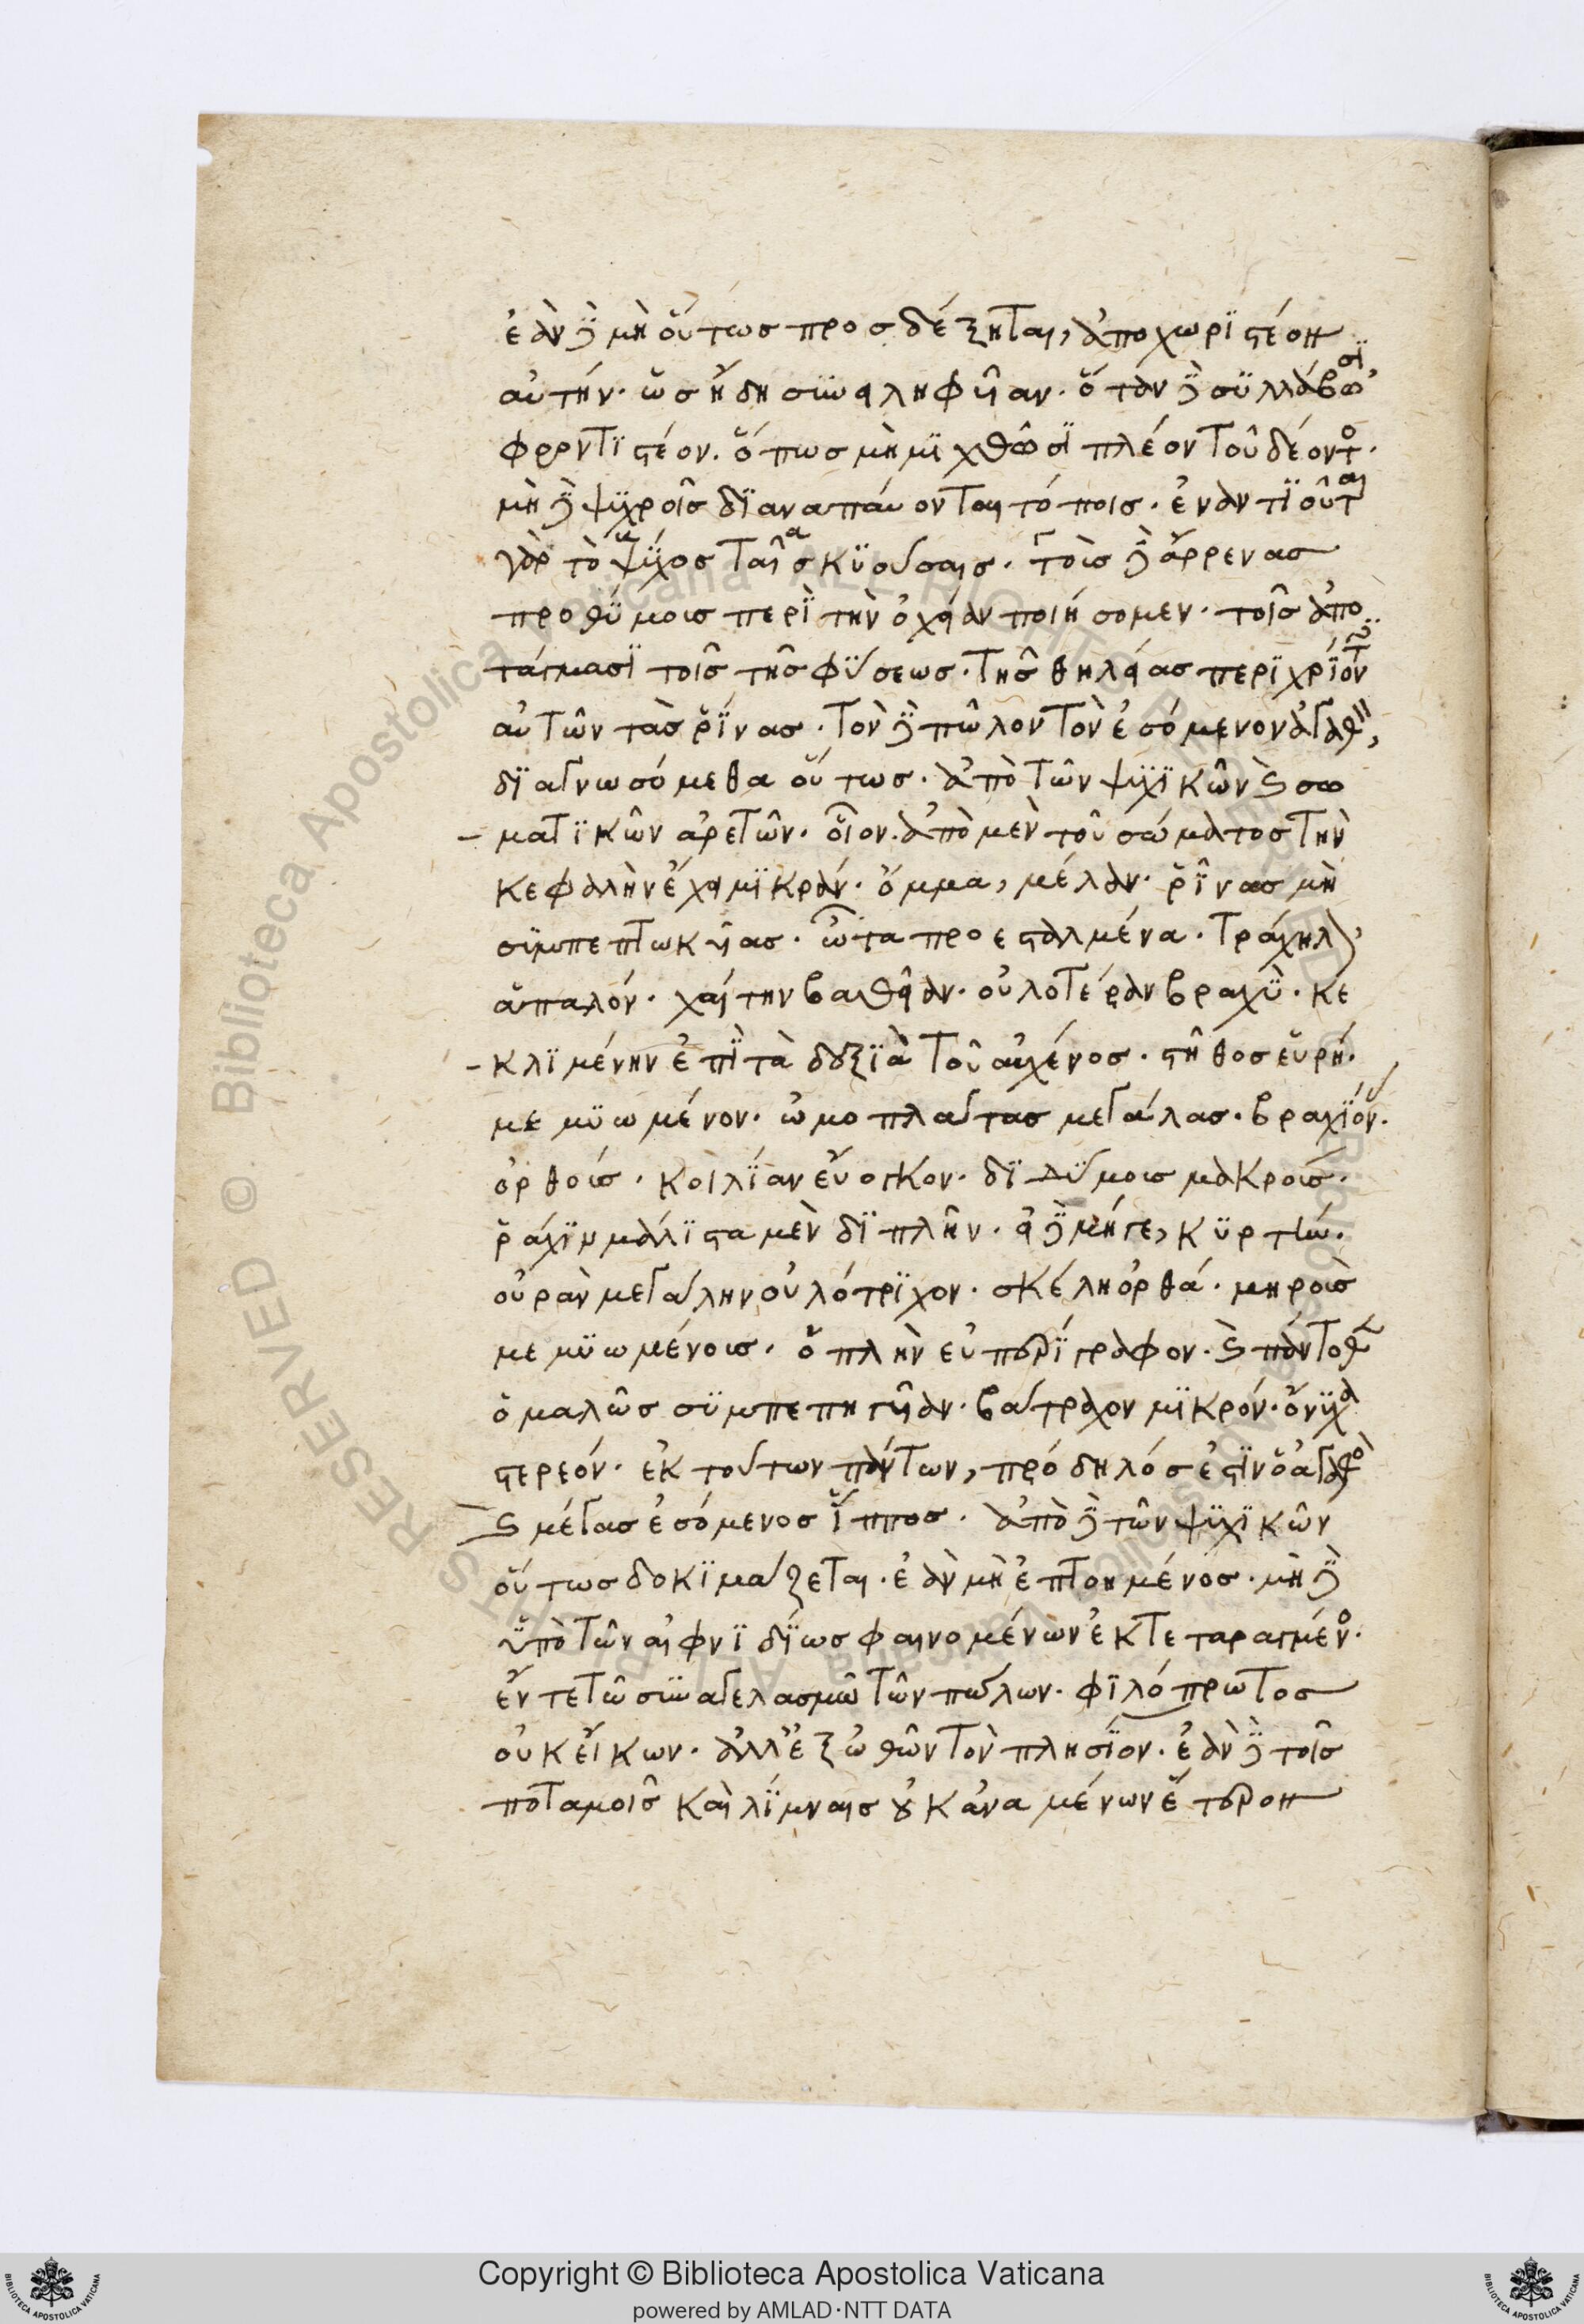 ἐὰν δὲ μὴ οὕτως προσδέξηται, ἀποχωριστέον
αὐτήν· ὡς ἤδη συνειληφυῖαν· ὅταν δὲ συλλάβωσι
φροντιστέον. ὅπως μὴ μιχθῶσι πλέον τοῦ δέοντος·
μὴ δὲ ψυχροῖς διαναπαύονται τόποις· ἐναντιοῦται
γὰρ τὸ ψύχος ταῖς κυούσαις· τοὺς δὲ ἄρρενας
προθύμους περὶ τὴν ὀχείαν ποιήσομεν· τοῖς ἀπο
τάγμασι τοῖς τῆς φύσεως· τῆς θηλείας περιχρίοντες
αὐτῶν τὰς ῥῖνας· τὸν δὲ πῶλον τὸν ἐσόμενον ἀγαθὸν,
διαγνωσόμεθα οὕτως· ἀπὸ τῶν ψυχικῶν καὶ σω
ματικῶν ἀρετῶν· οἷον· ἀπὸ μὲν τοῦ σώματος τὴν
κεφαλὴν ἔχει μικράν· ὄμμα, μέλαν· ῥῖνας μὴ
συμπεπτωκυίας· ὦτα προεσταλμένα· τράχηλον
ἁπαλόν· χαίτην βαθεῖαν· οὐλοτέραν βραχὺ· κε
κλιμένην ἐπὶ τὰ δεξιὰ τοῦ αὐχένος· στῆθος εὐρύ·
μεμυωμένον· ὠμοπλάτας μεγάλας· βραχίονας·
ὀρθούς· κοιλίαν εὔογκον· διδύμους μακρούς·
ῥάχιν μάλιστα μὲν διπλῆν· εἰ δὲ μήγε, κυρτὴν·
οὐρὰν μεγάλην οὐλότριχον· σκέλη ὀρθά· μηροὺς
μεμυωμένους· ὁπλὴν εὐπερίγραφον· καὶ πάντοθεν
ὁμαλῶς συμπεπηγυῖαν· βάτραχον μικρόν· ὄνυχα
στερεόν· ἐκ τούτων πάντων, πρόδηλός ἐστιν ὁ ἀγαθὸς
καὶ μέγας ἐσόμενος ἵππος· ἀπὸ δὲ τῶν ψυχικῶν
οὕτως δοκιμάζεται· ἐὰν μὴ ἐπτοημένος· μὴ δὲ
ὑπὸ τῶν αἰφνιδίως φαινομένων ἐκτεταραγμένος·
ἔν τε τῶ συναγελασμῶ τῶν πώλων· φιλόπρωτος
οὐκ εἴκων· ἀλλ' ἐξωθῶν τὸν πλησίον· ἐὰν δὲ τοῖς
ποταμοῖς καὶ λίμναις οὐκ ἀναμένων ἕτερον
Copyright © Biblioteca Apostolica Vaticana
powered by AMLAD·NTT DATA